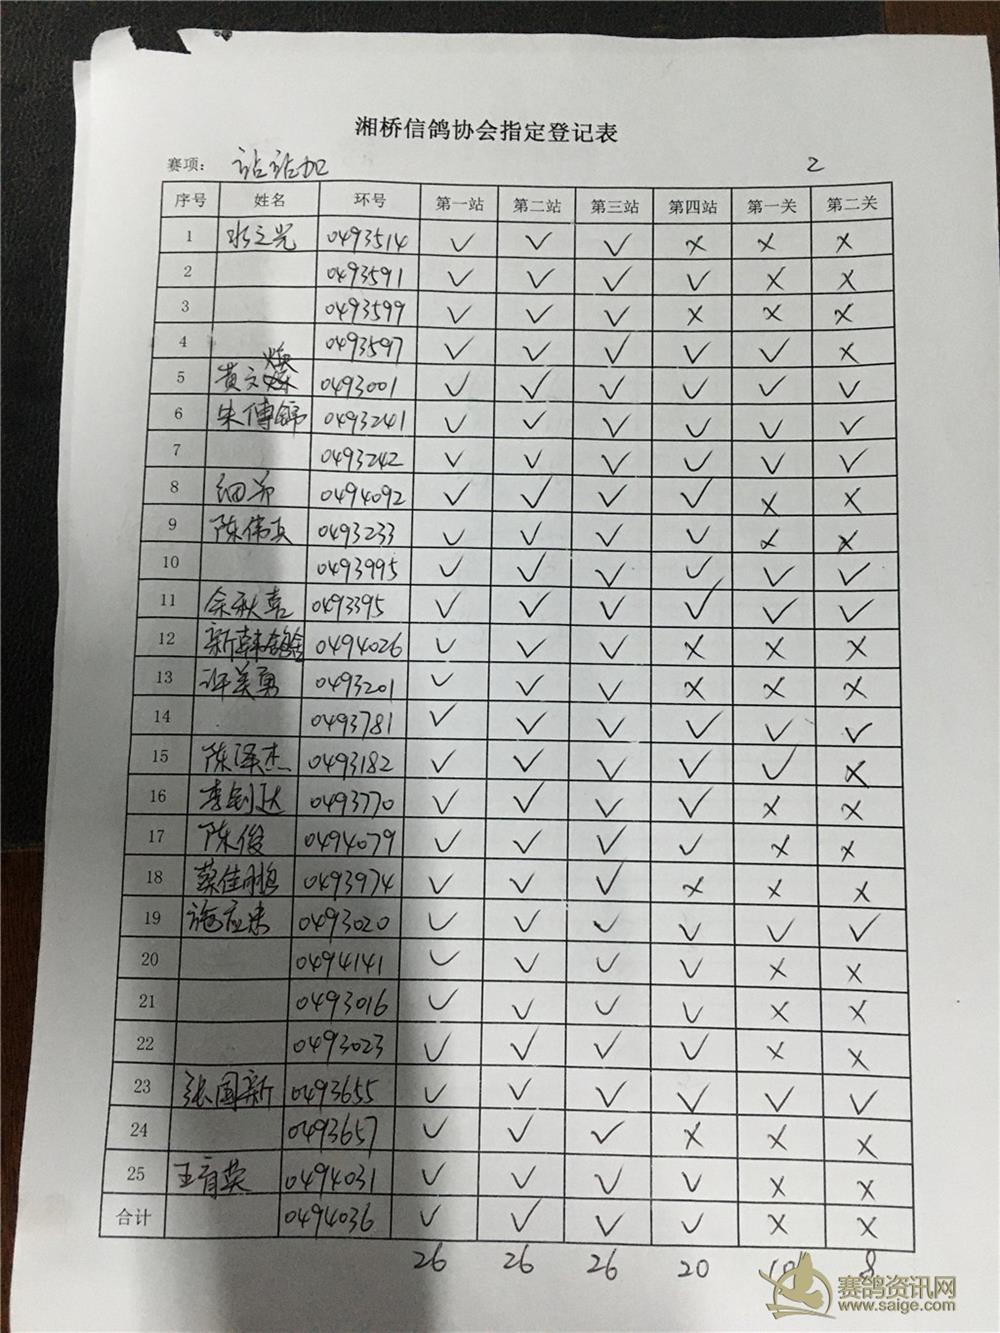 湘桥信鸽协会指定登记表
赛项: 站站加 2
序号 姓名 环号 第一站 第二站 第三站 第四站 第一关 第二关
1 0493514 ✓ ✓ ✓ × × ×
2 0493591 ✓ ✓ ✓ ✓ × ×
3 0493599 ✓ ✓ ✓ × × ×
4 0493597 ✓ ✓ ✓ ✓ ✓ ×
5 黄文焕 0493001 ✓ ✓ ✓ ✓ ✓ ✓
6 朱傅锦 0493241 ✓ ✓ ✓ ✓ ✓ ✓
7 0493242 ✓ ✓ ✓ ✓ ✓ ✓
8 细弟 0494092 ✓ ✓ ✓ ✓ × ×
9 陈伟真 0493233 ✓ ✓ ✓ ✓ × ×
10 0493995 ✓ ✓ ✓ ✓ ✓ ✓
11 余秋喜 0493395 ✓ ✓ ✓ ✓ ✓ ✓
12 0494026 ✓ ✓ ✓ × × ×
13 许美勇 0493201 ✓ ✓ ✓ × × ×
14 0493781 ✓ ✓ ✓ ✓ ✓ ✓
15 陈泽杰 0493182 ✓ ✓ ✓ ✓ ✓ ×
16 李钊达 0493770 ✓ ✓ ✓ ✓ × ×
17 陈俊 0494079 ✓ ✓ ✓ ✓ × ×
18 蔡佳鹏 0493974 ✓ ✓ ✓ × × ×
19 施应来 0493020 ✓ ✓ ✓ ✓ ✓ ✓
20 0494141 ✓ ✓ ✓ ✓ × ×
21 0493016 ✓ ✓ ✓ ✓ × ×
22 0493023 ✓ ✓ ✓ ✓ × ×
23 张国新 0493655 ✓ ✓ ✓ ✓ ✓ ✓
24 0493657 ✓ ✓ ✓ × × ×
25 王育英 0494031 ✓ ✓ ✓ ✓ × ×
合计 0494036 ✓ ✓ ✓ ✓ × ×
26 26 26 20 10 8
赛鸽资讯网
www.saige.com